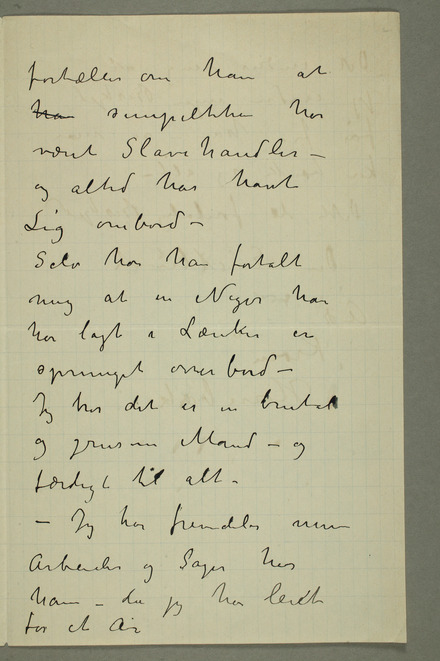 fortælles om ham at
han simpelthen har
været Slavehandler –
og altid har havt
Lig ombord –
Selv har han fortalt
mig at en Neger han
har lagt i Lænker er
sprunget over bord –
Jeg tror det er en brutal
og grusom Mand – og
færdigt til alt –
– Jeg har fremdeles mine
Arbeider og Sager hos
ham – da jeg har leiet
for et Aar